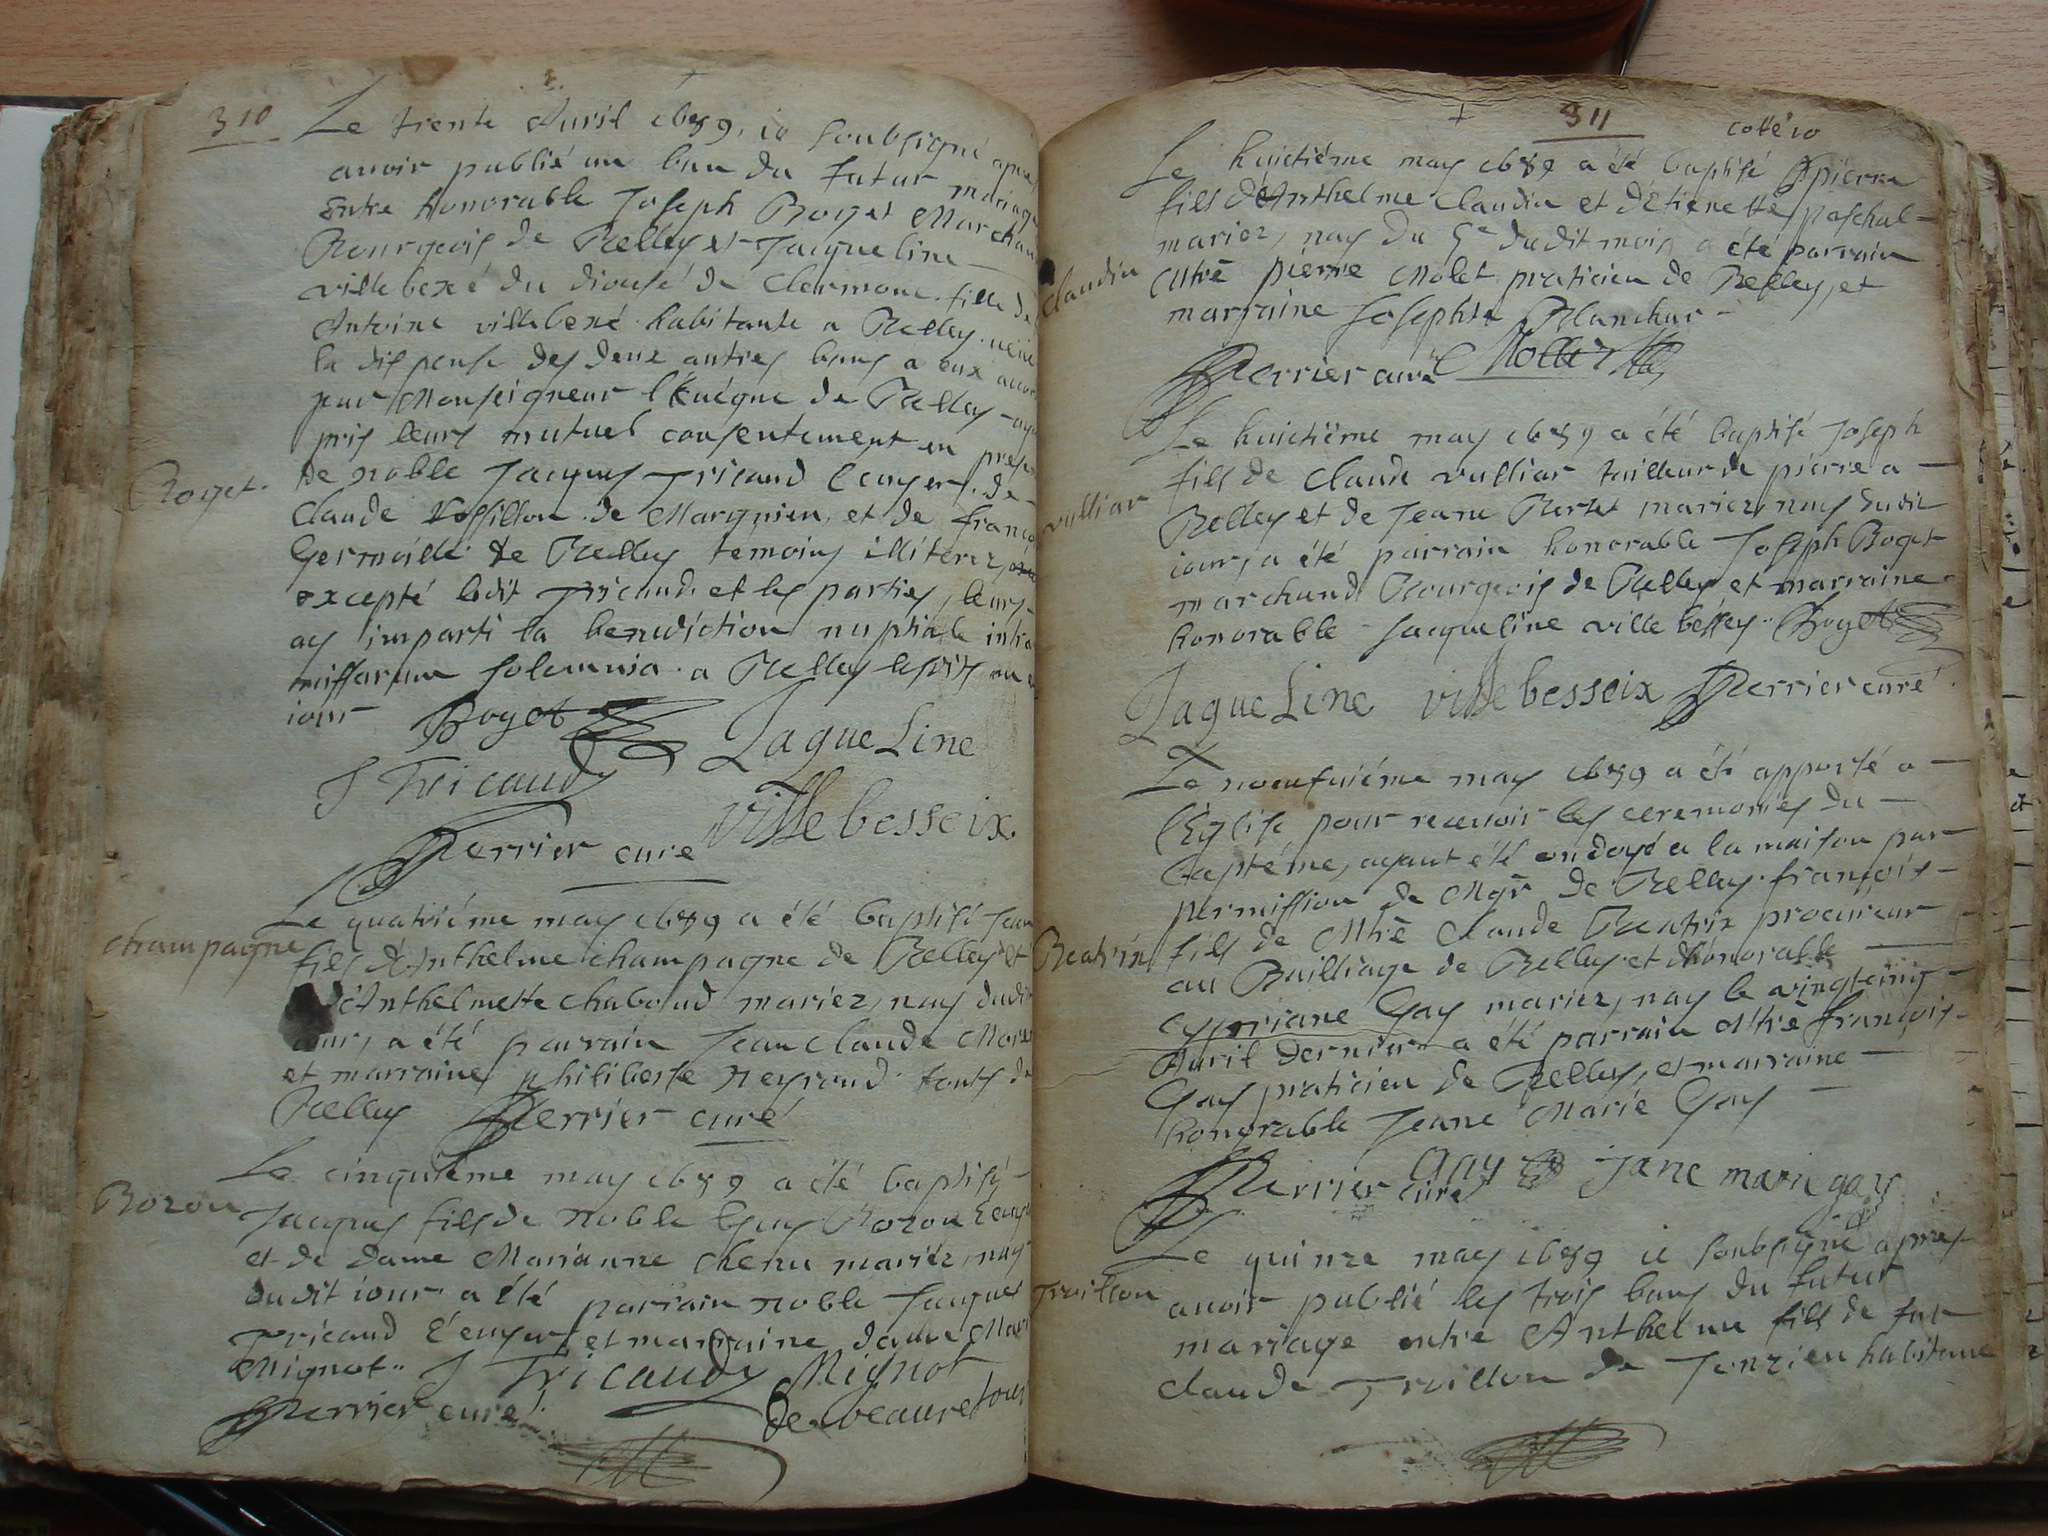 310
Le trente Auril 1689, ie soubsigné apres
auoir publié un ban du futur mariage
entre honorable Joseph Boget Marchan
Bourgeois de Belley et Jacqueline
villebexé du diocese de Clermont fille de
Antoine villebené habitante a Belley
la dispense des deux autres bans a eux
par Monseigneur l'Euéque de Belley
pris leurs mutuel consentement en
Boget
de noble Jacques Tricaud Ecuyer, de
Claude Rossillon de Marignieu, et de
Germaille de Belley temoins illiterez,
excepté ledit Tricaud et les parties, leurs
ay imparti la benediction nuptiale intra
missarum solemnia a Belley lesdits
iour
Boget Jaqueline
J Tricaud
villebesseix
Perrier curé
Champagne
Le quatriéme may 1689 a été baptisé Jean
fils d'Anthelme Champagne de Belley et
d'Anthelmette Chaboud mariez, nay dudit
iour, a été parrain Jean Claude
et marraine philiberte Neyroud touts de
Belley Perrier curé
Bozon
Le cinquiéme may 1689 a été baptisé
Jacques fils de noble Guy Bozon
et de dame Marianne Chenu mariéz, nay
dudit iour a été parrain noble Jacques
Tricaud Ecuyer, et marraine dame
Mignot J Tricaud Mignot
Perrier curé de beauretour
311
cotté 10
Le huictiéme may 1689 a été baptisé pierre
fils d'Anthelme Claudin et d'étienette paschal
Claudin
mariez, nay du 5e dudit mois, a été parrain
Mtre pierre Molet praticien de Belley, et
marraine Josephte Blanchur
Perrier curé Mollet
Le huictiéme may 1689 a été baptisé Joseph
fils de Claude vulliar tailleur de pierre a
vulliar
Belley et de Jeane mariez, nay dudit
iour, a été parrain honorable Joseph Boget
marchand Bourgeois de Belley et marraine
honorable Jacqueline ville bessey Boget
Jaqueline villebesseix Perrier curé
Le noeufuiéme may 1689 a été apporté a
l'Eglise pour receuoir les ceremonies du
baptéme, ayant été ondoyé a la maison par
permission de Mgr de Belley françois
Beatrix
fils de Mtre Claude Beatrix procureur
au Bailliage de Belley et d'honorable
Cypriane Gay mariez, nay le vingtcinq
Auril dernier a été parrain Mtre françois
Gay praticien de Belley, et marraine
honorable Jeane Marie Gay
Perrier curé Gay Jane marie gay
Troillon
Le quinze may 1689 ie soubsigné apres
auoir publié les trois bans du futur
mariage entre Anthelme fils de fut
Claude Troillon de habitant